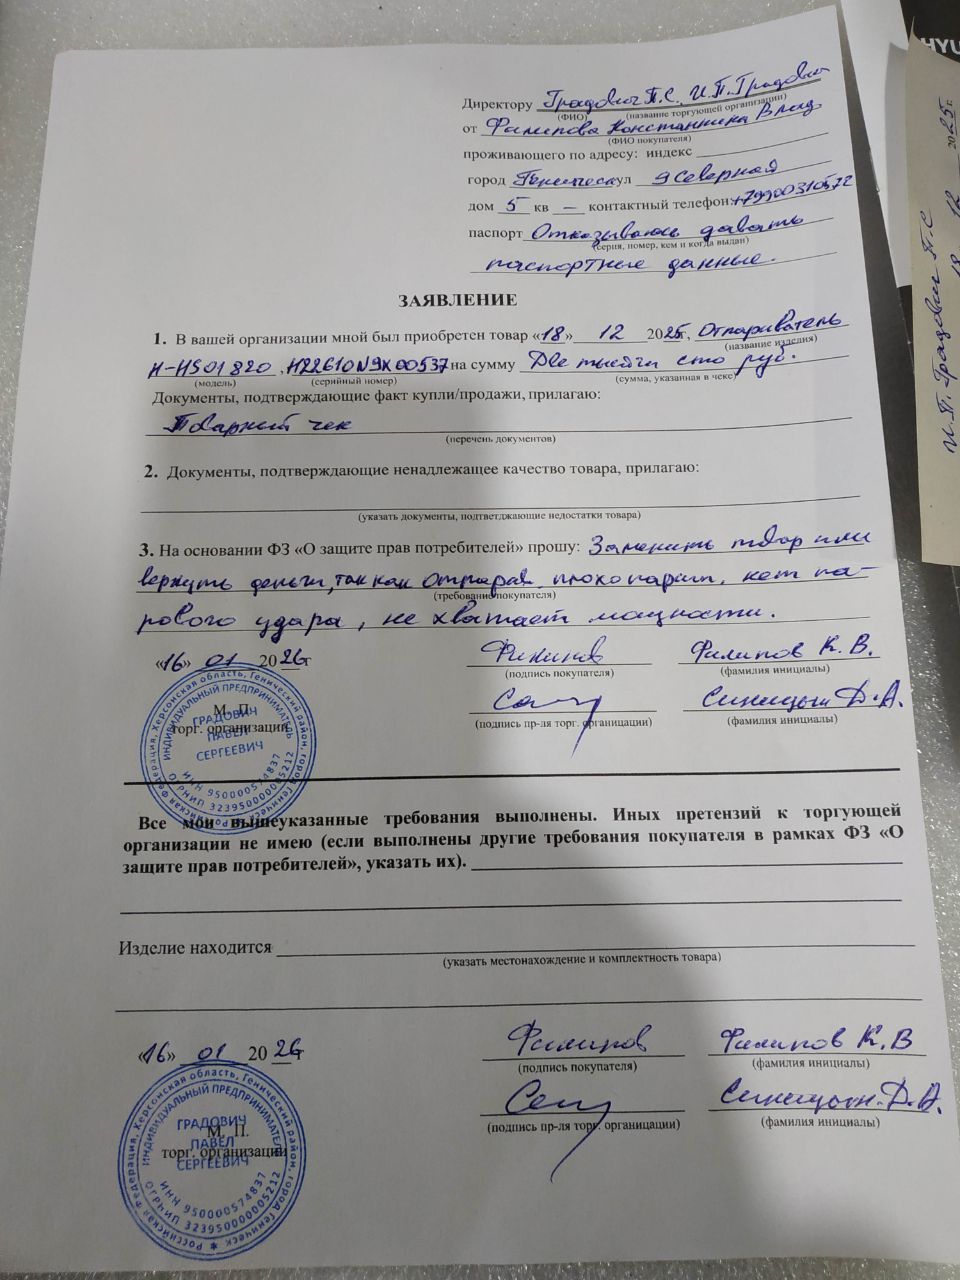 HYU
Директору Градович П.С. И.П. Градович
(ФИО) (название торгующей организации)
от Филипова Константина Влад
(ФИО покупателя)
проживающего по адресу: индекс
город Геническ ул 9 Северная
дом 5 кв — контактный телефон: +79900310572
паспорт Отказываюсь давать
(серия, номер, кем и когда выдан)
паспортные данные.
ЗАЯВЛЕНИЕ
1. В вашей организации мной был приобретен товар «18» 12 2025г, Отпариватель
(название изделия)
H-HS01820, H22610N9X00537 на сумму Две тысячи сто руб.
(модель) (серийный номер) (сумма, указанная в чеке)
Документы, подтверждающие факт купли/продажи, прилагаю:
Товарный чек
(перечень документов)
2. Документы, подтверждающие ненадлежащее качество товара, прилагаю:
(указать документы, подтветджающие недостатки товара)
3. На основании ФЗ «О защите прав потребителей» прошу: Заменить товар или
вернуть деньги, так как отпарив плохо парит, нет па-
(требование покупателя)
рового удара, не хватает мощности.
«16» 01 2026г Филипов Филипов К. В.
(подпись покупателя) (фамилия инициалы)
М. П. Синицын Д.А.
торг. организации (подпись пр-ля торг. органицации) (фамилия инициалы)
Российская Федерация, Херсонская область, Генический район, город Геническ
ИНДИВИДУАЛЬНЫЙ ПРЕДПРИНИМАТЕЛЬ
ГРАДОВИЧ
ПАВЕЛ
СЕРГЕЕВИЧ
ИНН 950000574837
ОГРНИП 323950000005212
Все мои вышеуказанные требования выполнены. Иных претензий к торгующей
организации не имею (если выполнены другие требования покупателя в рамках ФЗ «О
защите прав потребителей», указать их).
Изделие находится
(указать местонахождение и комплектность товара)
«16» 01 2026г Филипов Филипов К.В
(подпись покупателя) (фамилия инициалы)
М. П. Синицын Д.А.
торг. организации (подпись пр-ля торг. органицации) (фамилия инициалы)
Российская Федерация, Херсонская область, Генический район, город Геническ
ИНДИВИДУАЛЬНЫЙ ПРЕДПРИНИМАТЕЛЬ
ГРАДОВИЧ
ПАВЕЛ
СЕРГЕЕВИЧ
ИНН 950000574837
ОГРНИП 323950000005212
И.П. Градович П.С
18 12 2025г.